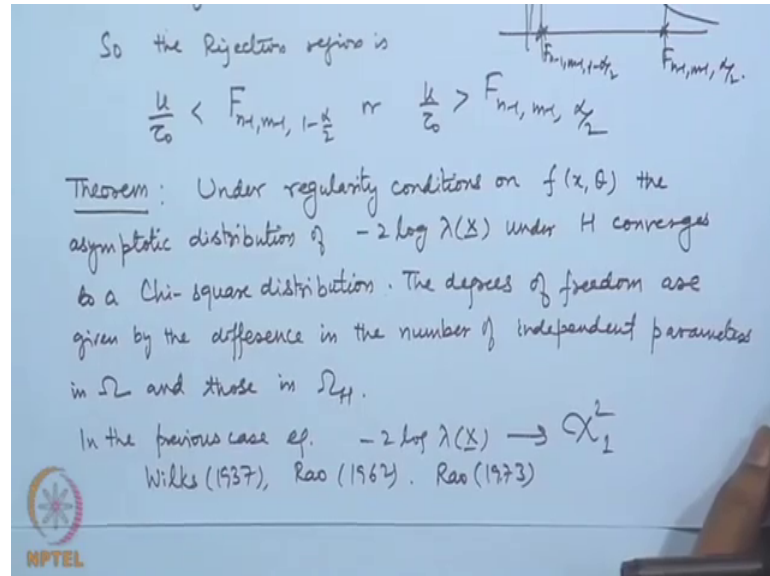 So the Rejection region is
F n-1, m-1, 1-α/2
F n-1, m-1, α/2.
u/τ₀ < F n-1, m-1, 1-α/2 or u/τ₀ > F n-1, m-1, α/2
Theorem: Under regularity conditions on f(x, θ) the
asymptotic distribution of -2 log λ(X) under H converges
to a Chi-square distribution. The degrees of freedom are
given by the difference in the number of independent parameters
in Ω and those in Ω_H.
In the previous case eg. -2 log λ(X) → χ²₁
Wilks (1937), Rao (1962). Rao (1973)
NPTEL